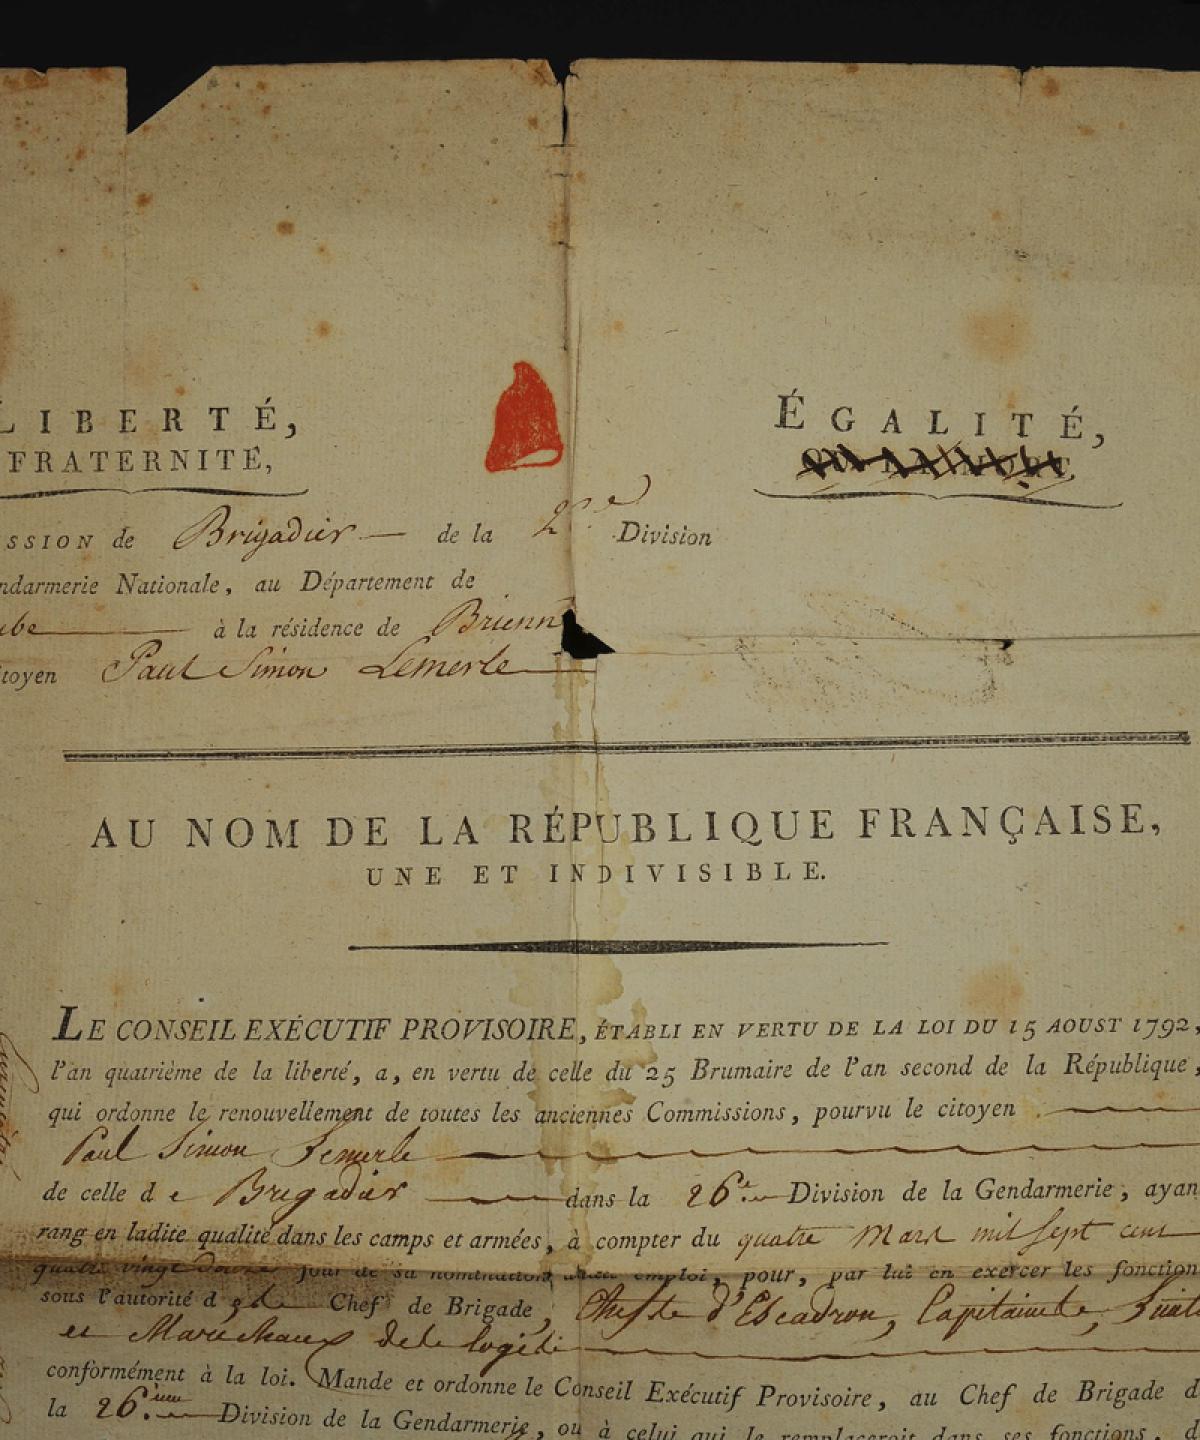 LIBERTÉ, ÉGALITÉ,
FRATERNITÉ, OU LA MORT.
SSION de Brigadier de la 2 Division
ndarmerie Nationale, au Département de
ube à la résidence de Brienn
itoyen Paul Simon Lemerle
AU NOM DE LA RÉPUBLIQUE FRANÇAISE,
UNE ET INDIVISIBLE.
LE CONSEIL EXÉCUTIF PROVISOIRE, ÉTABLI EN VERTU DE LA LOI DU 15 AOUST 1792,
l'an quatrième de la liberté, a, en vertu de celle du 25 Brumaire de l'an second de la République,
qui ordonne le renouvellement de toutes les anciennes Commissions, pourvu le citoyen
Paul Simon Lemerle
de celle de Brigadier dans la 26e Division de la Gendarmerie, ayan
rang en ladite qualité dans les camps et armées, à compter du quatre Mars mil sept cent
quatre vingt douze jour de sa nomination audit emploi, pour, par lui en exercer les fonction
sous l'autorité d Chef de Brigade, Chef de d'Escadron, Capitaine
et Marechaux de logis
conformément à la loi. Mande et ordonne le Conseil Exécutif Provisoire, au Chef de Brigade d
la 26.ieme Division de la Gendarmerie, ou à celui qui le remplaceroit dans ses fonctions, d